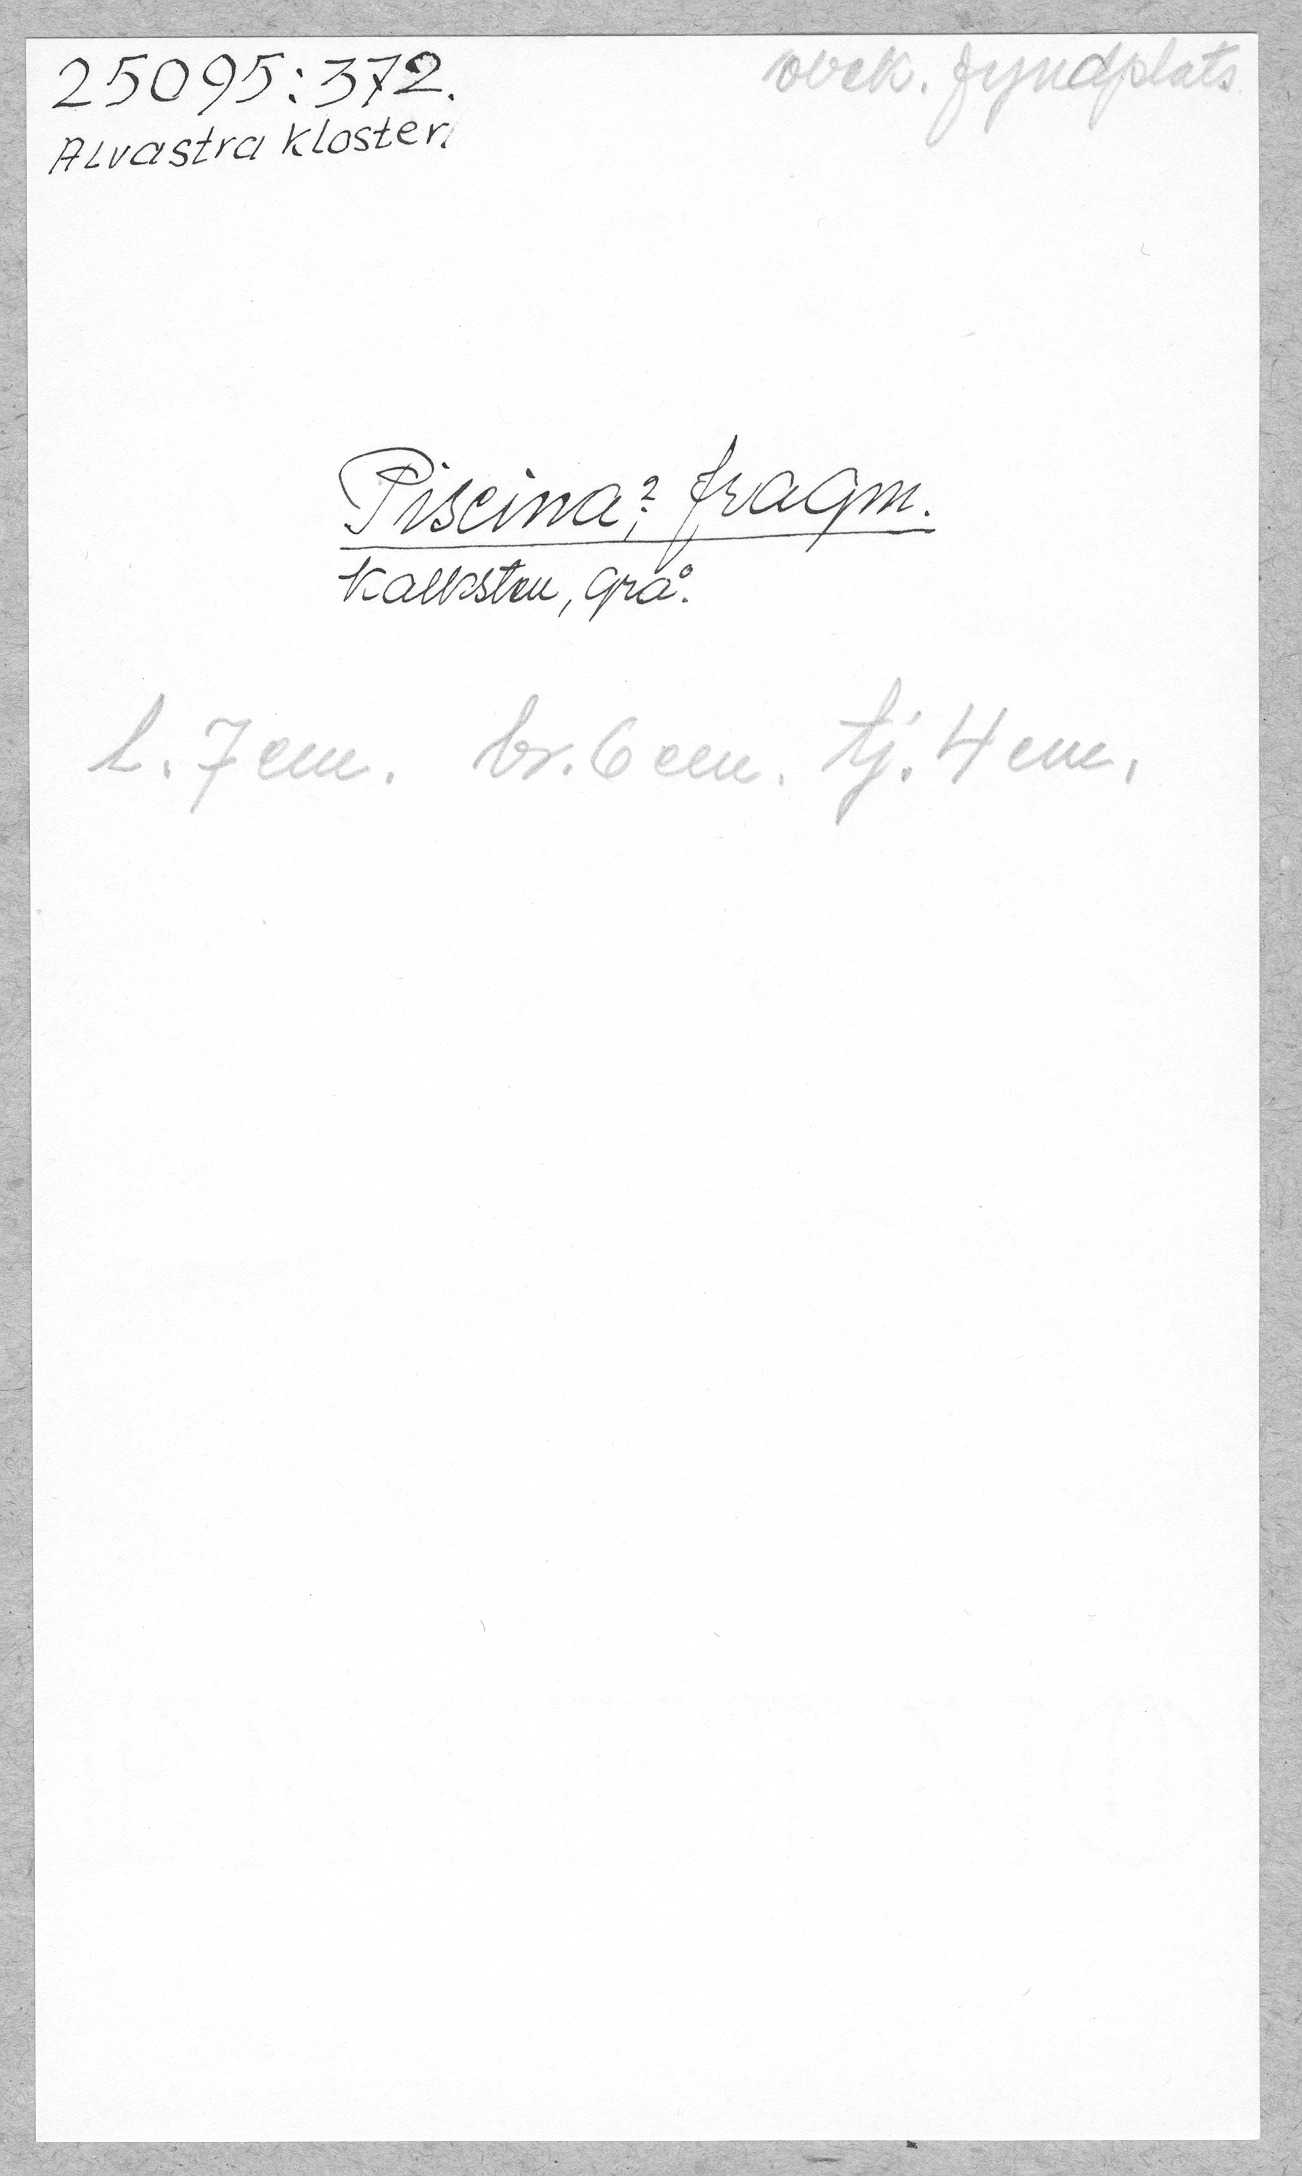 25095:372.
okek. fyndplats.
Alvastra kloster.
Piscina?, fragm.
Kalksten, grå.
L. 7 cm. br. 6 cm. tj. 4 cm.